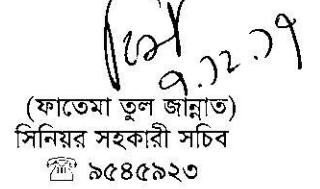 ৭.১২.১৭
(ফাতেমা তুল জান্নাত)
সিনিয়র সহকারী সচিব
☎ ৯৫৪৫৯২৩